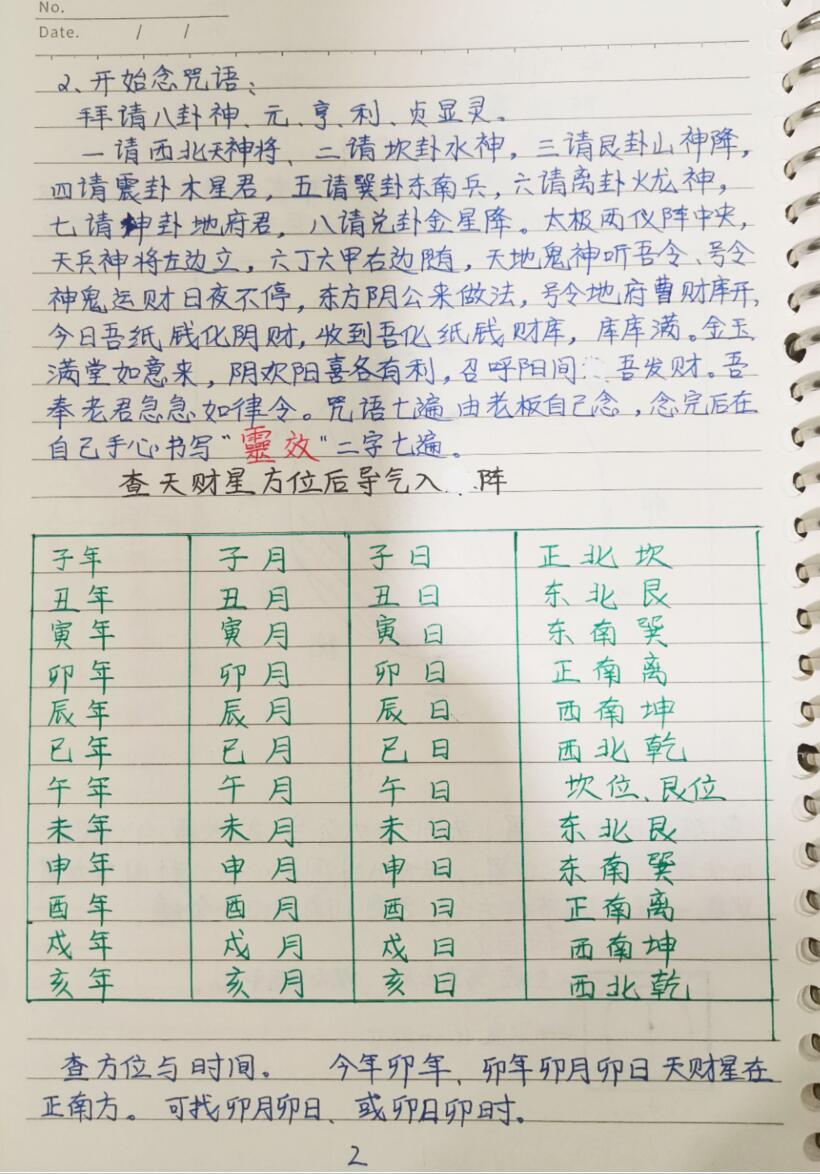 No.
Date. / /
2、开始念咒语：
拜请八卦神、元、亨、利、贞显灵。
一请西北天神将、二请坎卦水神，三请艮卦山神降，
四请震卦木星君，五请巽卦东南兵，六请离卦火龙神，
七请坤卦地府君，八请兑卦金星降。太极两仪阵中央，
天兵神将左边立，六丁六甲右边随，天地鬼神听吾令、号令
神鬼运财日夜不停，东方阴公来做法，号令地府曹财库开，
今日吾纸钱化阴财，收到吾化纸钱财库，库库满。金玉
满堂如意来，阴欢阳喜各有利，召呼阳间 吾发财。吾
奉老君急急如律令。咒语七遍由老板自己念，念完后在
自己手心书写“靈效”二字七遍。
查天财星方位后导气入 阵
子年 子月 子日 正北坎
丑年 丑月 丑日 东北艮
寅年 寅月 寅日 东南巽
卯年 卯月 卯日 正南离
辰年 辰月 辰日 西南坤
巳年 巳月 巳日 西北乾
午年 午月 午日 坎位、艮位
未年 未月 未日 东北艮
申年 申月 申日 东南巽
酉年 酉月 酉日 正南离
戌年 戌月 戌日 西南坤
亥年 亥月 亥日 西北乾
查方位与时间。 今年卯年、卯年卯月卯日天财星在
正南方。可找卯月卯日、或卯日卯时。
2